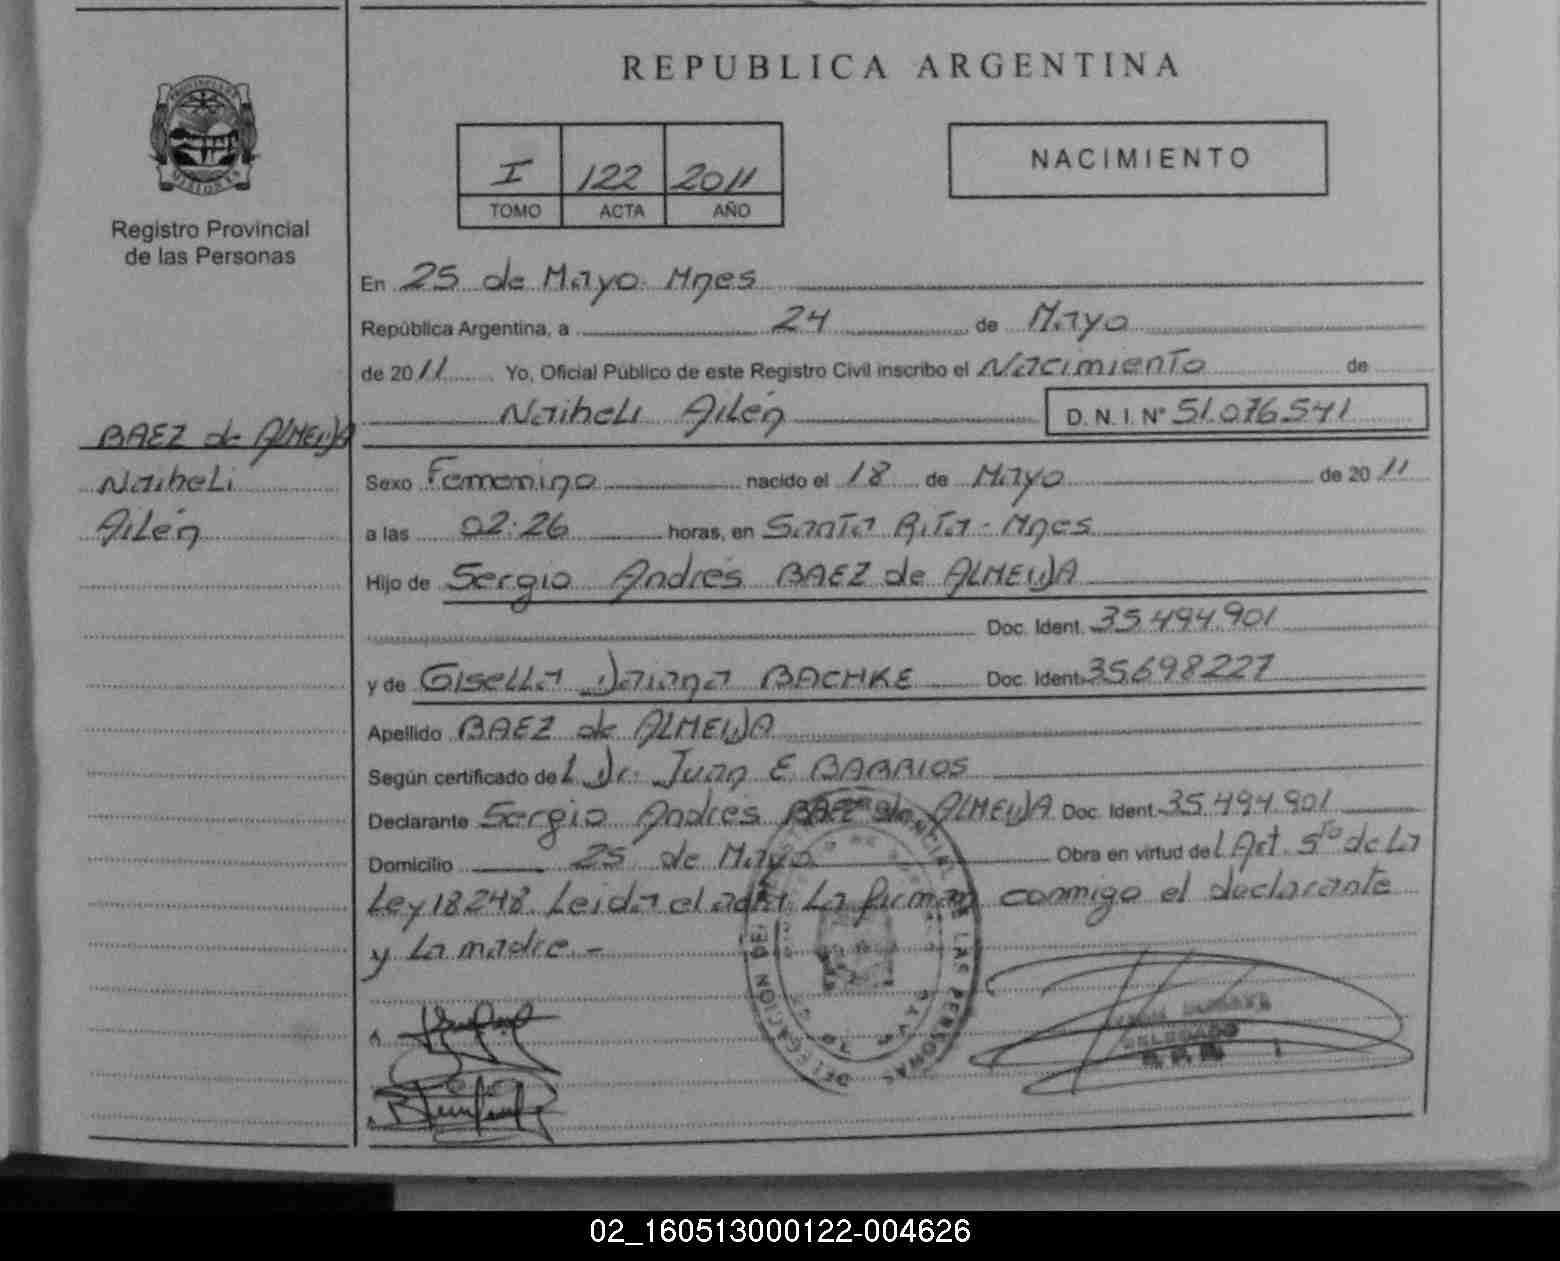 REPUBLICA ARGENTINA
PROVINCIA DE MISIONES
Registro Provincial
de las Personas
I 122 2011
TOMO ACTA AÑO
NACIMIENTO
En 25 de Mayo Mnes
República Argentina, a 24 de Mayo
de 2011 Yo, Oficial Público de este Registro Civil inscribo el Nacimiento de
Naiheli Ailén D. N. I. N° 51.076.541
BAEZ de ALMEIDA
Naiheli
Ailén
Sexo Femenino nacido el 18 de Mayo de 2011
a las 02:26 horas, en Santa Rita - Mnes
Hijo de Sergio Andrés BAEZ de ALMEIDA
Doc. Ident. 35.494.901
y de Gisella Daiana BACHKE Doc. Ident. 35.698227
Apellido BAEZ de ALMEIDA
Según certificado del Dr. Juan E BARRIOS
Declarante Sergio Andrés BAEZ de ALMEIDA Doc. Ident. 35.494.901
Domicilio 25 de Mayo Obra en virtud del Art. 5to de La
Ley 18.248. Leida el acta La firman conmigo el declarante
y La madre.-
DELEGACION DEL REGISTRO PROVINCIAL DE LAS PERSONAS
25 DE MAYO
DELEGADO
02_160513000122-004626